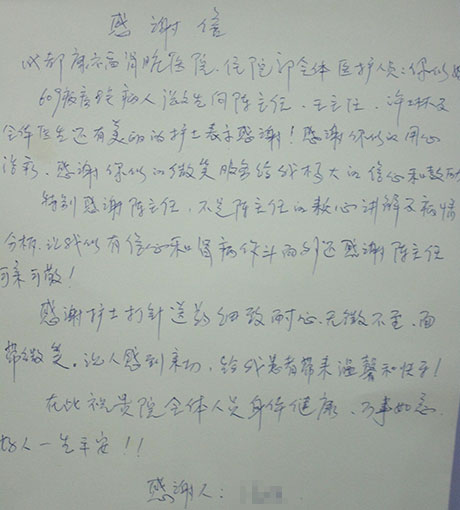 感谢信
成都康福肾脏医院、住院部全体医护人员：你们好
609病房住院病人 向陈主任、王主任、许士林及
全体医生还有美丽的护士表示感谢！感谢你们的用心
治疗、感谢你们的微笑服务给我极大的信心和鼓励
特别感谢陈主任、不是陈主任的教心讲解及病情
分析、让我们有信心和肾病作斗 还感谢陈主任
可亲可敬！
感谢护士打针送药细致耐心、无微不至、面
带微笑。让人感到亲切，给我患者带来温馨和快乐！
在此祝贵院全体人员身体健康、万事如意、
好人一生平安！！
感谢人：